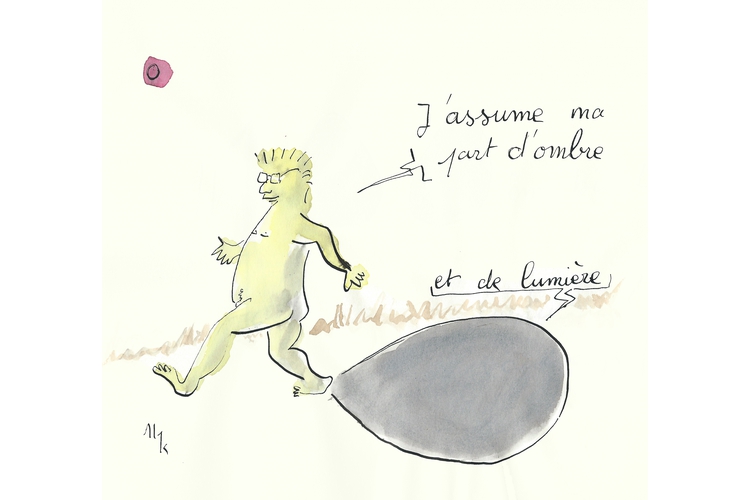 J'assume ma
part d'ombre
et de lumière